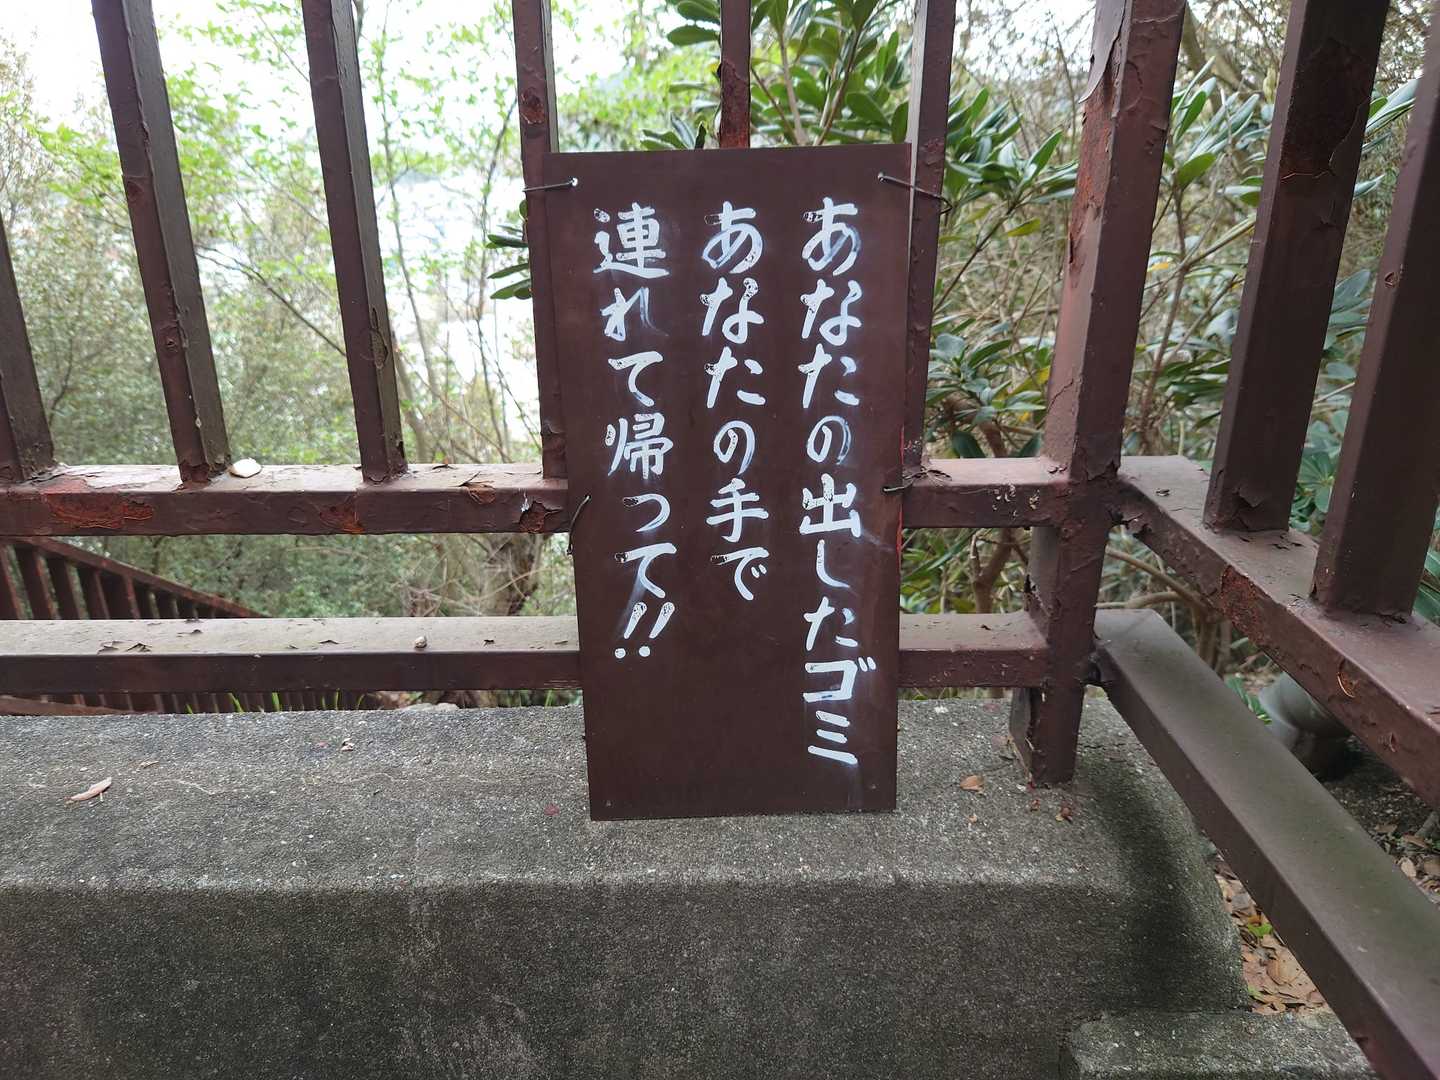 あなたの出したゴミ
あなたの手で
連れて帰って!!